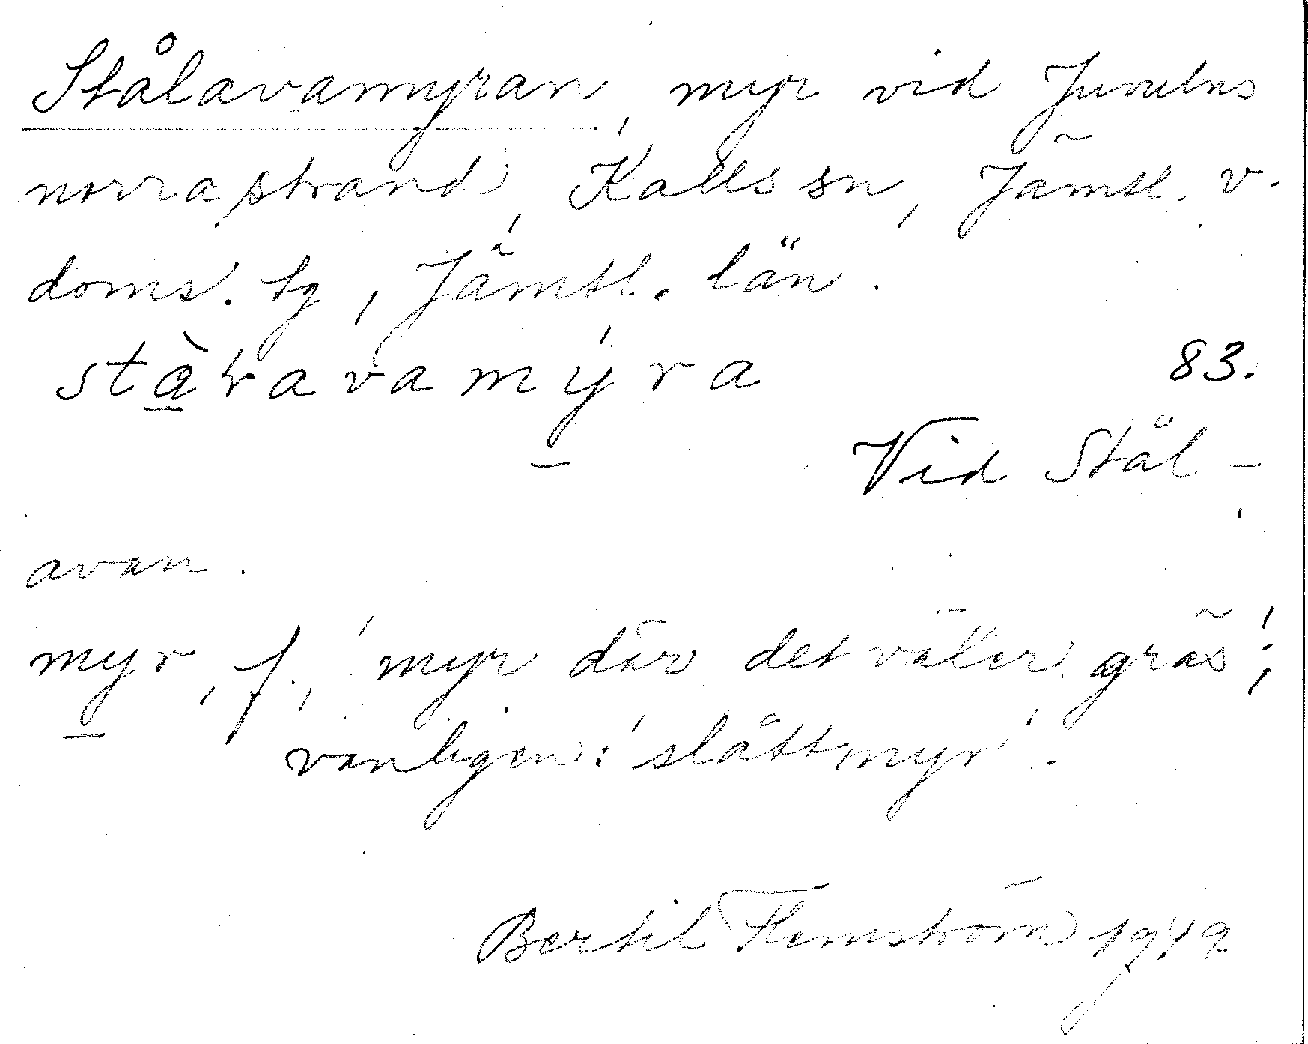 Stålavamyran, myr vid Juvulns
norra strand, Kalls sn, Jämtl. v.
doms. tg, Jämtl. län.
stàlavamýra 83.
Vid Stål-
avan.
myr, f., 'myr där det växer gräs';
vanligen: 'slåttmyr'.
Bertil Flemström 1949